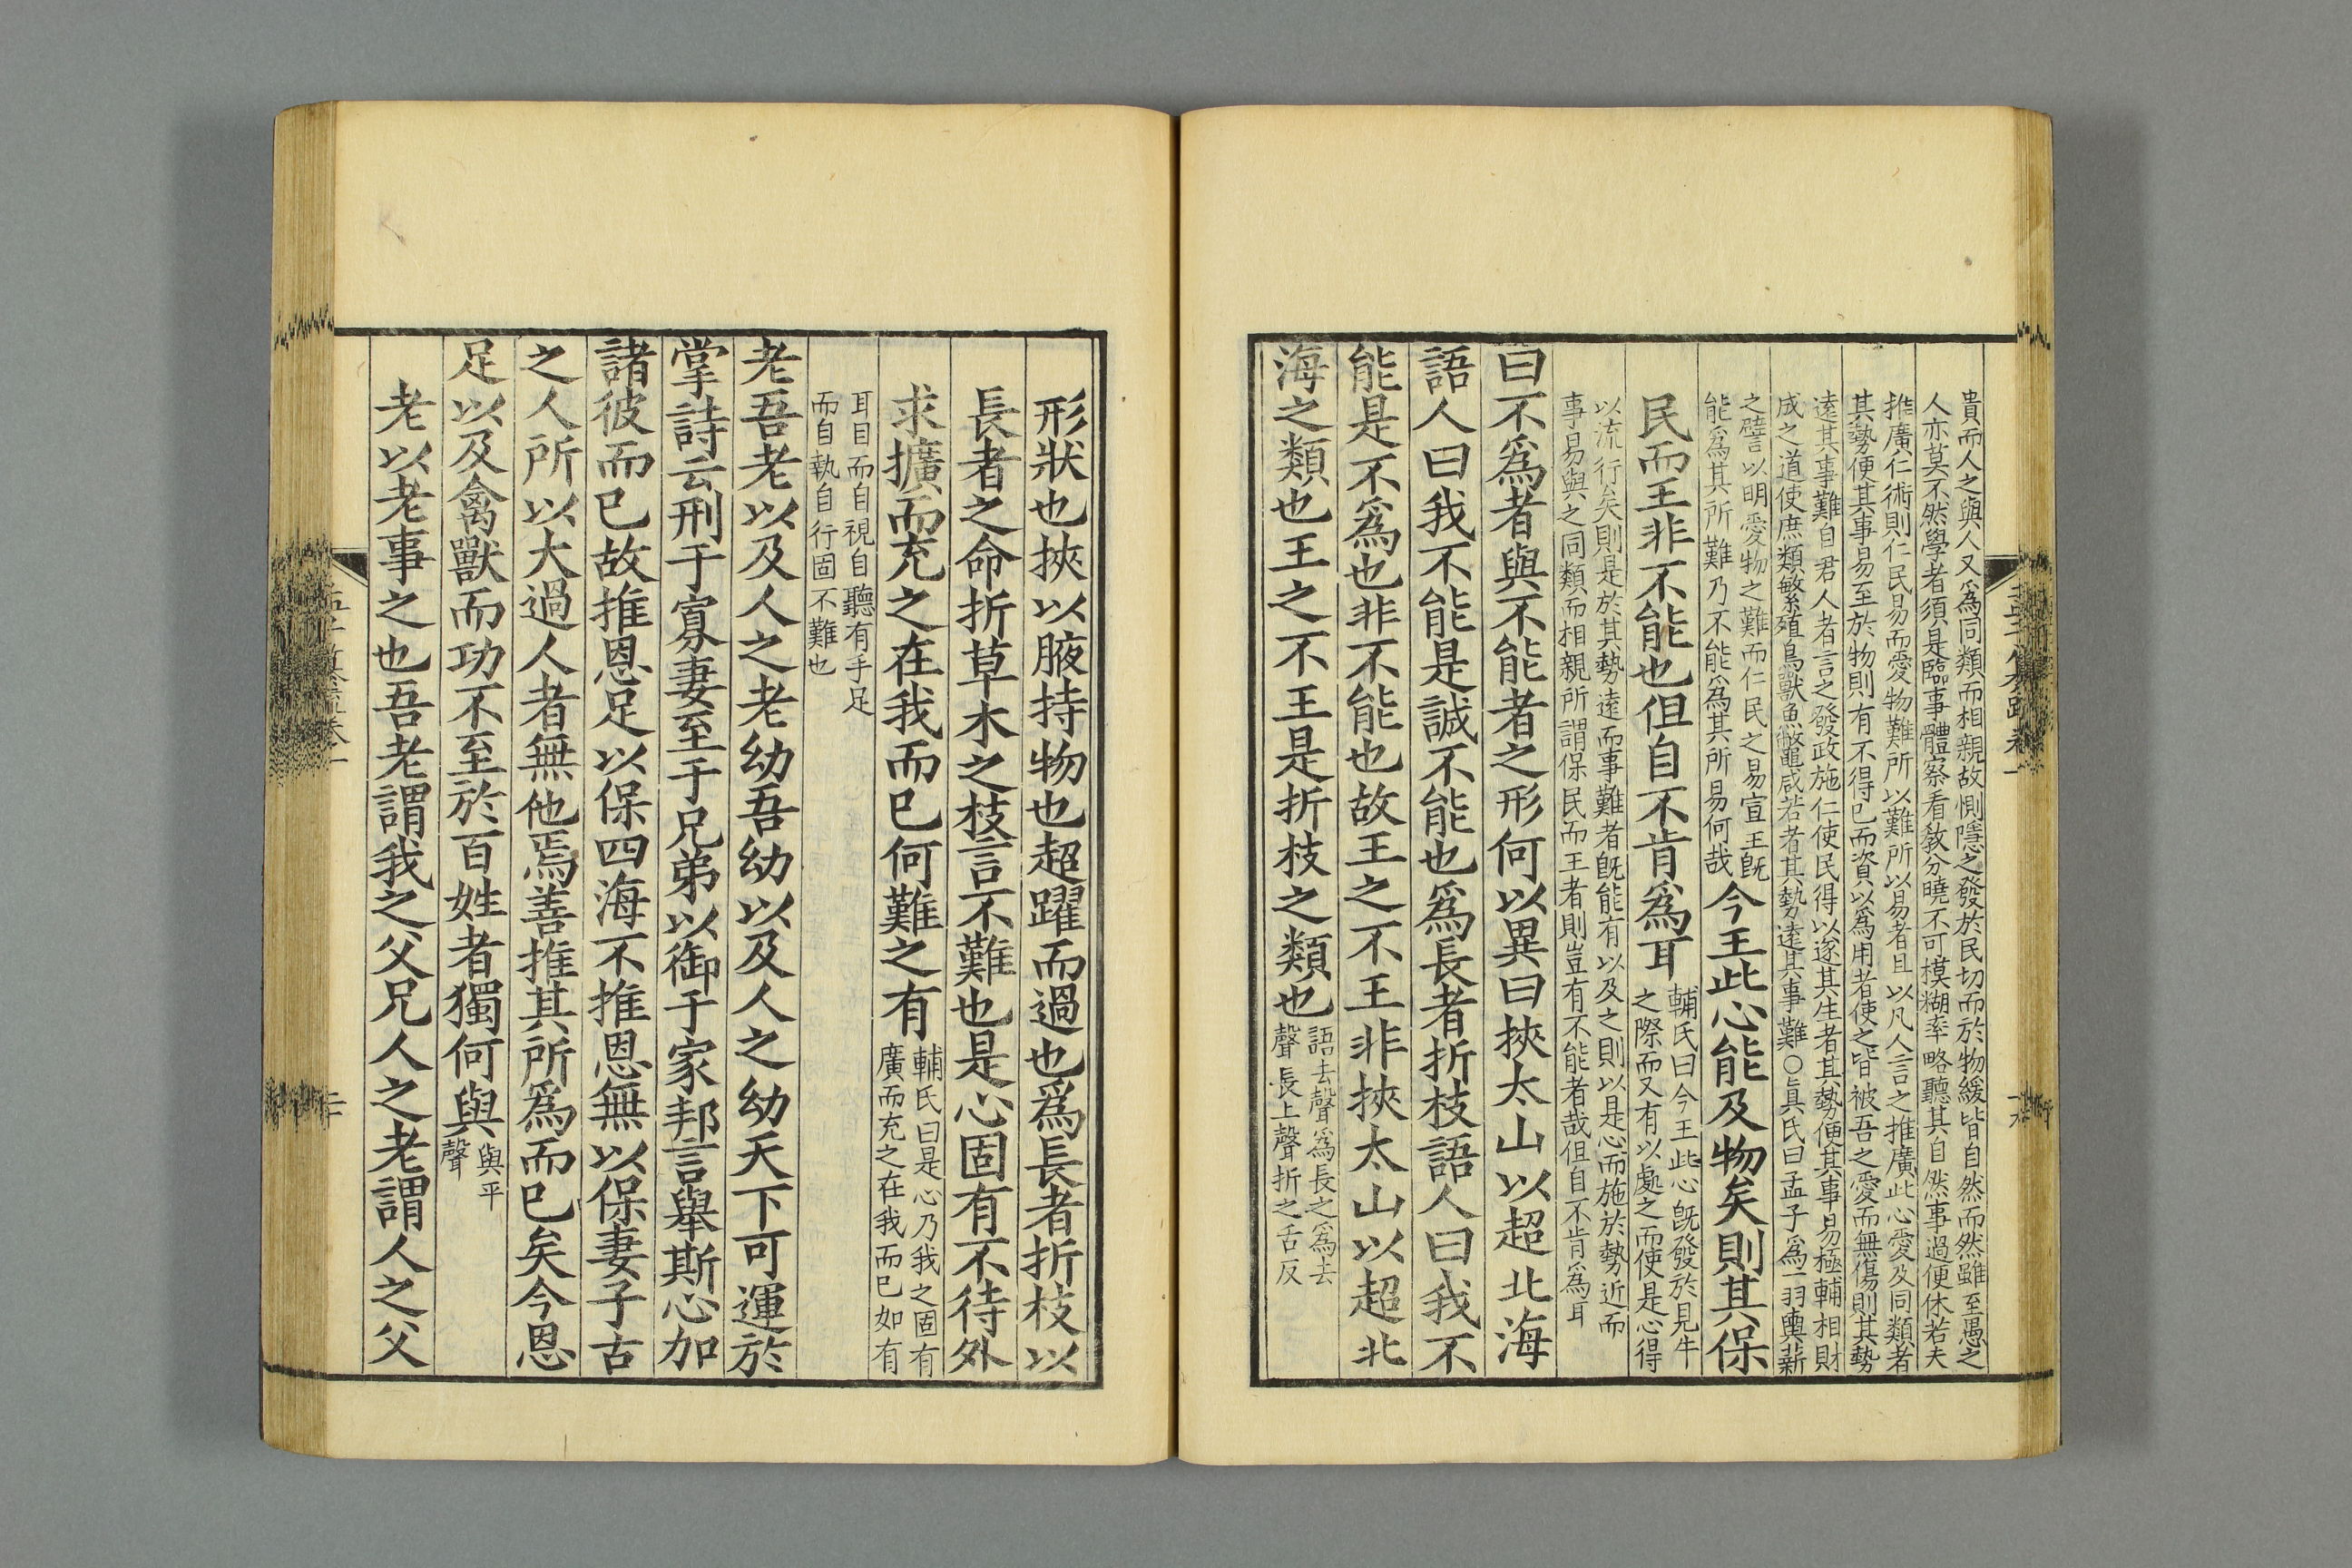 貴而人之與人又爲同類而相親故惻隱之發於民切而於物緩皆自然而然雖至愚之
人亦莫不然學者須是臨事體察看敎分曉不可模糊率略聽其自然事過便休若夫
推廣仁術則仁民易而愛物難所以難所以易者且以凡人言之推廣此心愛及同類者
其勢便其事易至於物則有不得已而資以爲用者使之皆被吾之愛而無傷則其勢
遠其事難自君人者言之發政施仁使民得以遂其生者其勢便其事易極輔相財
成之道使庶類繁殖鳥獸魚鼈咸若者其勢遠其事難○眞氏曰孟子爲一羽輿薪
之譬以明愛物之難而仁民之易宣王旣
能爲其所難乃不能爲其所易何哉
今王此心能及物矣則其保
民而王非不能也但自不肯爲耳
輔氏曰今王此心旣發於見牛
之際而又有以處之而使是心得
以流行矣則是於其勢遠而事難者旣能有以及之則以是心而施於勢近而
事易與之同類而相親所謂保民而王者則豈有不能者哉但自不肯爲耳
曰不爲者與不能者之形何以異曰挾太山以超北海
語人曰我不能是誠不能也爲長者折枝語人曰我不
能是不爲也非不能也故王之不王非挾太山以超北
海之類也王之不王是折枝之類也
語去聲爲長之爲去
聲長上聲折之舌反
形狀也挾以腋持物也超躍而過也爲長者折枝以
長者之命折草木之枝言不難也是心固有不待外
求擴而充之在我而已何難之有
輔氏曰是心乃我之固有
廣而充之在我而已如有
耳目而自視自聽有手足
而自執自行固不難也
老吾老以及人之老幼吾幼以及人之幼天下可運於
掌詩云刑于寡妻至于兄弟以御于家邦言舉斯心加
諸彼而已故推恩足以保四海不推恩無以保妻子古
之人所以大過人者無他焉善推其所爲而已矣今恩
足以及禽獸而功不至於百姓者獨何與
與平
聲
老以老事之也吾老謂我之父兄人之老謂人之父